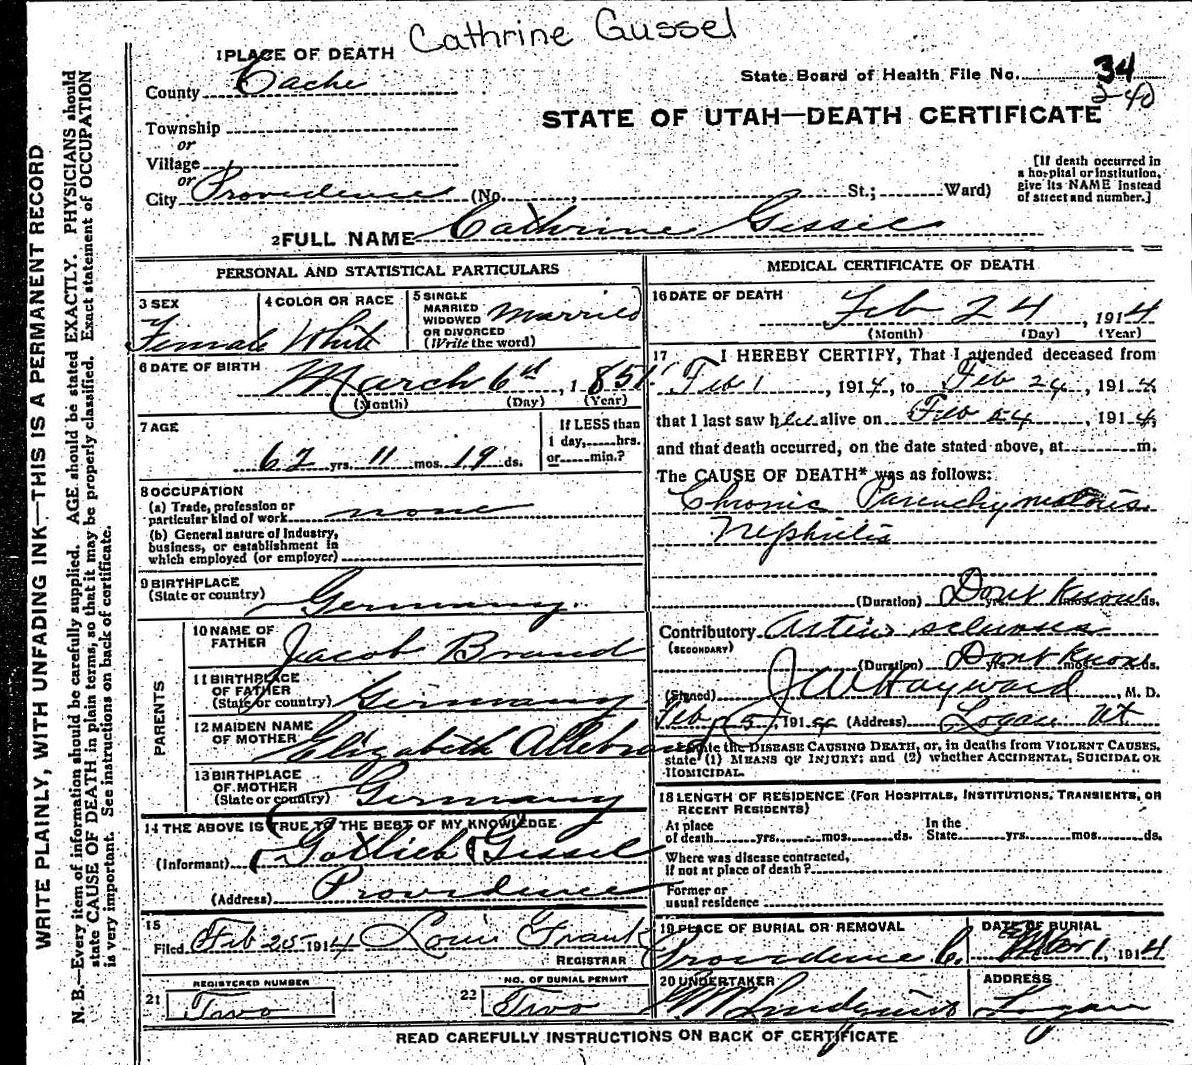 Cathrine Gussel
1 PLACE OF DEATH
County Cache
State Board of Health File No. 34
2-40
STATE OF UTAH—DEATH CERTIFICATE
Township
or
Village
or
City Providence (No. , St.; Ward)
[If death occurred in a hospital or institution, give its NAME instead of street and number.]
2 FULL NAME Cathrine Gissel
PERSONAL AND STATISTICAL PARTICULARS
3 SEX Female
4 COLOR OR RACE White
5 SINGLE MARRIED WIDOWED OR DIVORCED (Write the word) Married
6 DATE OF BIRTH March 6th, 1851
(Month) (Day) (Year)
7 AGE
62 yrs. 11 mos. 19 ds.
If LESS than 1 day, hrs. or min.?
8 OCCUPATION
(a) Trade, profession or particular kind of work none
(b) General nature of Industry, business, or establishment in which employed (or employer)
9 BIRTHPLACE
(State or country) Germany.
PARENTS
10 NAME OF FATHER Jacob Braud
11 BIRTHPLACE OF FATHER (State or country) Germany
12 MAIDEN NAME OF MOTHER Elizabeth
13 BIRTHPLACE OF MOTHER (State or country) Germany
14 THE ABOVE IS TRUE TO THE BEST OF MY KNOWLEDGE
(Informant) Gotlieb Gissel
(Address) Providence
15
Filed Feb 25 1914 Louis Frank
REGISTRAR
21 REGISTERED NUMBER Two
22 NO. OF BURIAL PERMIT Two
MEDICAL CERTIFICATE OF DEATH
16 DATE OF DEATH
Feb 24, 1914
(Month) (Day) (Year)
17 I HEREBY CERTIFY, That I attended deceased from
Feb 1, 1914, to Feb 24, 1914
that I last saw her alive on Feb 24, 1914,
and that death occurred, on the date stated above, at m.
The CAUSE OF DEATH* was as follows:
Chronic Parenchymatous
Nephritis
(Duration) Dont Know yrs. mos. ds.
Contributory Arterio sclerosis
(SECONDARY)
(Duration) Dont Know yrs. mos. ds.
(Signed) J W Hayward, M. D.
Feb 25, 1914 (Address) Logan Ut
*State the DISEASE CAUSING DEATH, or, in deaths from VIOLENT CAUSES, state (1) MEANS OF INJURY: and (2) whether ACCIDENTAL, SUICIDAL OR HOMICIDAL.
18 LENGTH OF RESIDENCE (FOR HOSPITALS, INSTITUTIONS, TRANSIENTS, OR RECENT RESIDENTS)
At place of death yrs. mos. ds. In the State yrs. mos. ds.
Where was disease contracted, if not at place of death?
Former or usual residence
19 PLACE OF BURIAL OR REMOVAL
Providence C.
DATE OF BURIAL
Mar 1, 1914
20 UNDERTAKER
ADDRESS
Logan
READ CAREFULLY INSTRUCTIONS ON BACK OF CERTIFICATE
WRITE PLAINLY, WITH UNFADING INK—THIS IS A PERMANENT RECORD
N. B.—Every item of information should be carefully supplied. AGE should be stated EXACTLY. PHYSICIANS should
state CAUSE OF DEATH in plain terms, so that it may be properly classified. Exact statement of OCCUPATION
is very important. See instructions on back of certificate.